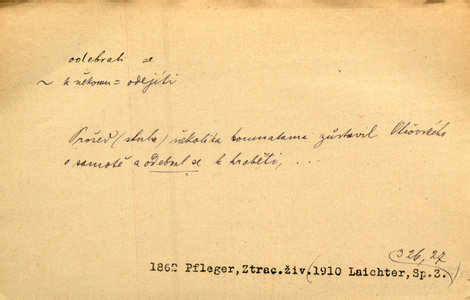 odebrati se
~ k někomu = odejíti
Prošed (sluha) několika komnatama zůstavil Olšovského
o samotě a odebral se k hraběti, ...
326, 27
1862 Pfleger, Ztrac.živ.(1910 Laichter, Sp.3.)